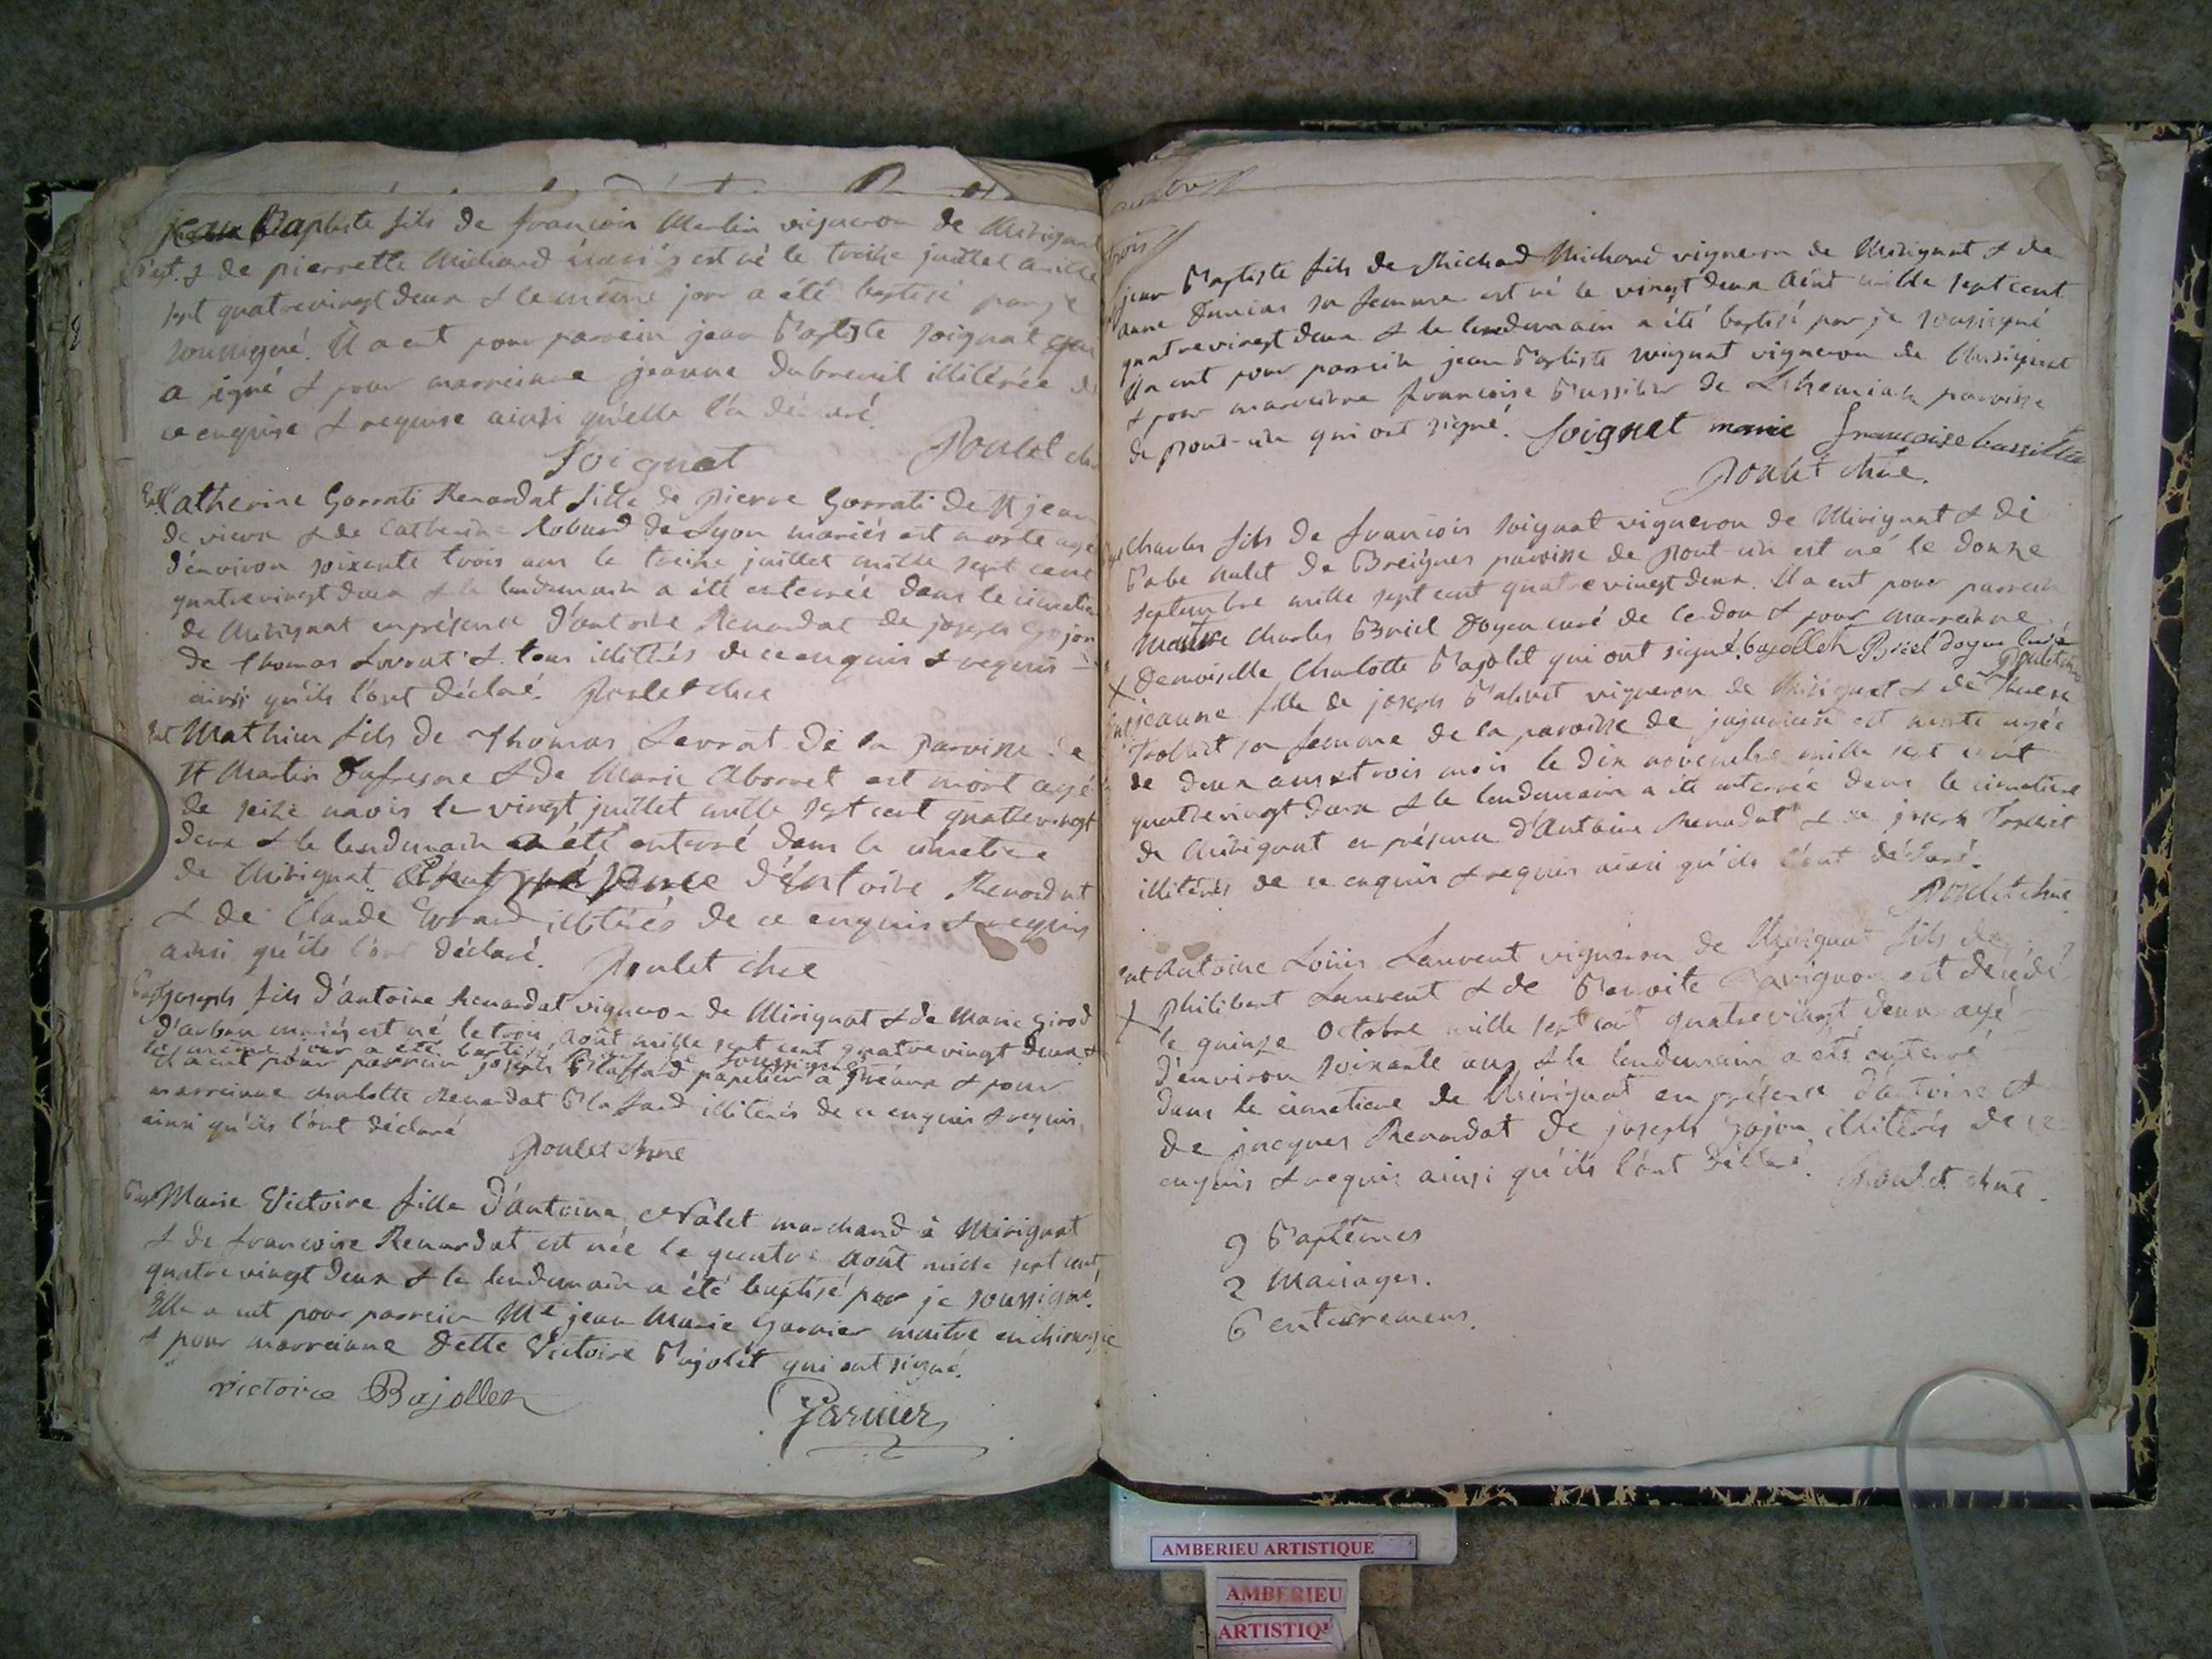 jean Baptiste fils de françois Merlin vigneron de Mérignat
Bapt. & de pierrette Michaud mariés est né le treize juillet mille
sept quatrevingt deux & le même jour a été baptisé par je
soussigné. Il a eut pour parrein jean Baptiste soignat qui
a signé & pour marreinne jeanne Dubreuil illitérée de
ce enquise & requise ainsi qu'elle l'a déclaré.
Soignat Poulet
Catherine Gorrati Renardat fille de pierre Gorrati de St jean
de vieux & de Catherine Robard de Lyon mariés est morte agée
d'environ soixante trois ans le treize juillet mille sept cent
quatrevingt deux & le lendemain a été enterrée dans le cimetie
de Mérignat en présence d'antoine Renardat de joseph Gojon
de Thomas Levrat & tous illitérés de ce enquis & requis
ainsi qu'ils l'ont déclaré. Poulet chne
Ent Mathieu fils de Thomas Levrat de la paroisse de
St Martin Dufresne & de Marie Abornet est mort agé
de seize mois le vingt juillet mille sept cent quatrevingt
deux & le lendemain a été enterré dans le cimetiere
de Mérignat en présence d'antoine Renardat
& de Claude Evrard illitérés de ce enquis & requis
ainsi qu'ils l'ont déclaré. Poulet chne
Bapt joseph fils d'antoine Renardat vigneron de Mérignat & de Marie Girod
d'arban mariés est né le trois août mille sept cent quatre vingt deux &
le même jour a été baptisé soussigné
Il a eut pour parrein joseph Blaffard papetier à Préaux & pour
marreinne charlotte Renardat Blaffard illitérés de ce enquis & requis
ainsi qu'ils l'ont déclaré
Poulet chne
Bapt Marie Victoire fille d'antoine Nalet marchand à Mérignat
& de françoise Renardat est née le quatre août mille sept cent
quatrevingt deux & le lendemain a été baptisé par je soussigné.
Elle a eut pour parrein Me jean Marie Garnier maitre en chirurgie
& pour marreinne Delle Victoire Bajolet qui ont signé.
victoire Bajollet Garnier
trois
jean Baptiste fils de Michard vigneron de Mérignat & de
anne sa femme est né le vingt deux Août mille sept cent
quatrevingt deux & le lendemain a été baptisé par je soussigné
Il a eut pour parrein jean Baptiste soignat vigneron de Mérignat
& pour marreinne françoise Bussillet de paroisse
de pont-ain qui ont signé. Soignet marie françoise bussillet
Poulet chne.
Charles fils de françois soignat vigneron de Mérignat & de
Babe Aulet de Breignes paroisse de pont-ain est né le douze
septembre mille sept cent quatre vingt deux. Il a eut pour parrein
Maitre Charles Bruel Doyen curé de Cerdon & pour marreinne
Demoiselle Charlotte Bajolet qui ont signé. bajollet Bruel doyen curé
Poulet chne
Ent jeanne fille de joseph vigneron de Mérignat & de Therese
sa femme de la paroisse de jujurieux est morte agée
de deux ans & trois mois le dix novembre mille sept cent
quatrevingt deux & le lendemain a été enterrée dans le cimetiere
de Mérignat en présence d'Antoine Renardat & de joseph
illitérés de ce enquis & requis ainsi qu'ils l'ont déclaré.
Poulet chne
Ent Antoine Louis Laurent vigneron de Mérignat fils de
philibert Laurent & de Benoite Savignon est décédé
le quinze Octobre mille sept cent quatrevingt deux agé
d'environ soixante ans & le lendemain a été enterré
dans le cimetiere de Mérignat en présence d'antoine &
de jacques Renardat de joseph Gojon illitérés de ce
enquis & requis ainsi qu'ils l'ont déclaré. Poulet chne.
9 Baptêmes
2 Mariages.
6 enterremens.
AMBERIEU ARTISTIQUE
AMBERIEU
ARTISTIQ